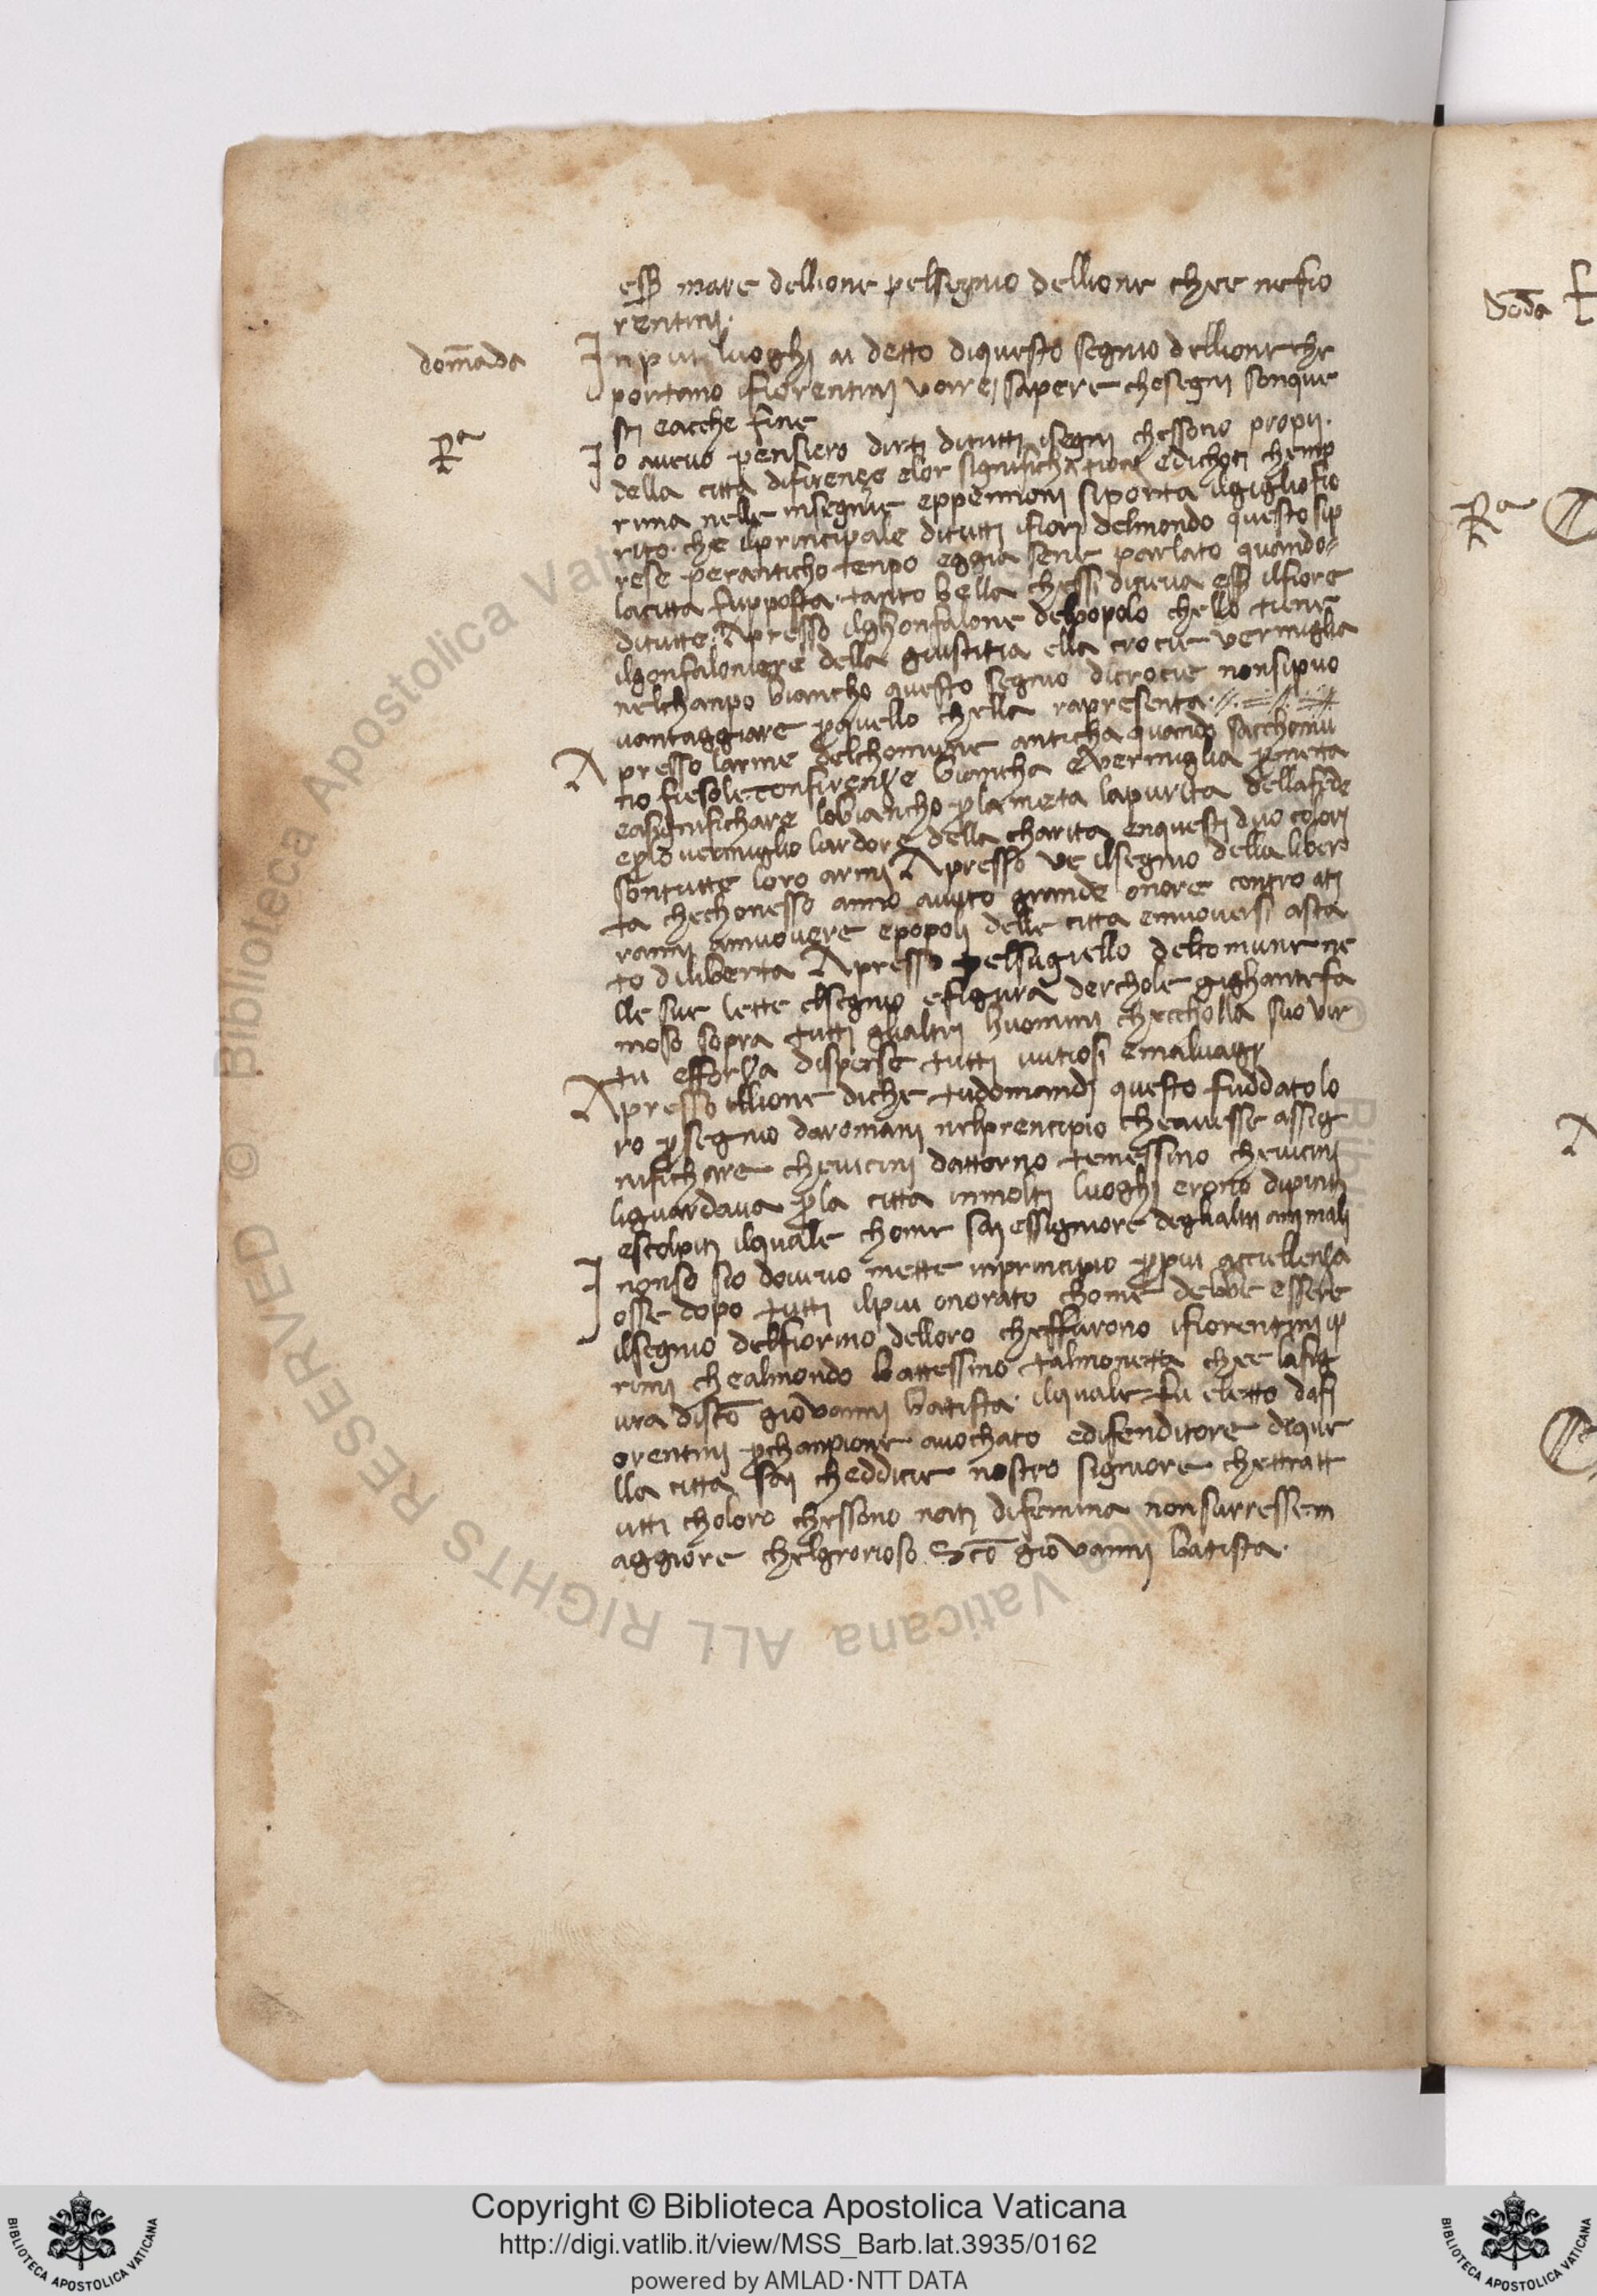 essere mare dellione pelsegnio dellione chee nefio
rentini.
domãda
In piu luoghj ai detto diquesto segnio dellione che
portano ifiorentinj vorrej sapere chesegni sonque
sti eacche fine
Rª
Io avevo pensiero dirti ditutti isegni chessono propij.
della citta difirenze elor significhatione edichoti chemp
rima nelle insegnie eppennoni siporta ilgigliofio
rito. che ilprincipale ditutti ifiori delmondo questosip
rese peranticho tenpo eggia sene parlato quando
lacitta fupposta. tanto bella chessi diceva esser ilfiore
ditutte. Apresso ilghonfalone delpopolo chello tiene
ilgonfaloniere della giustitia ella crocie vermiglia
nelchanpo biancho questo segnio dicrocie nonsipuo
vantaggiare pquello chella rapresenta.
Apresso larme delchomune anticha quando sacchomu
no fiesole confirenze biancha evermiglia pmetta
easignifichare lobiancho plameta lapurita dellafede
eplo vermiglio lardore della charita enquesti duo colori
sontutte loro armj Apresso ve ilsegnio della liber
ta chechonesso anno avuto grande onore contro ati
rannj amuovere epopoli delle citta emuoversi asta
to diliberta Apresso pelsugiello delcomune ne
lle sue lette elsegnio efigura derchole gighantefa
moso sopra tutti glialtri huomini checcholla suo vir
tu efforza disperse tutti vitiosi emalvagi
Apresso illione diche tudomandj questo fuddatolo
ro psegnio daromani nelprencipio cheavesse assig
nifichare chevicinj dattorno temessino chevicini
liguardava pla citta inmolti luoghj erono dipinti
escolpiti ilquale chome sai essigniore deglialtri animali
I nonso sio dovevo mette inprincipio ppiu eccellenza
osse dopo tutti ilpiu onorato chome debbe essere
ilsegnio delfiorino delloro cheffurono ifiorentinip
rimi chealmondo battessino talmonetta chee lafig
ura discõ giovannj batista. ilquale fu eletto dafi
orentinj pchanpione avochato edifenditore dique
lla citta sai cheddicie nostro signiore chettratt
utti choloro chessono nati difemina nonsurressem
aggiore chelgrorioso Scõ giovannj batista.
Dõda
Rª
Copyright © Biblioteca Apostolica Vaticana
http://digi.vatlib.it/view/MSS_Barb.lat.3935/0162
powered by AMLAD·NTT DATA
BIBLIOTECA APOSTOLICA VATICANA
BIBLIOTECA APOSTOLICA VATICANA
© Biblioteca Apostolica Vaticana ALL RIGHTS RESERVED